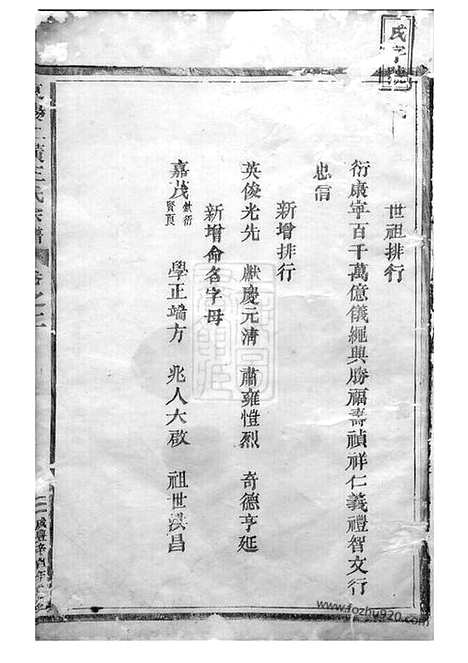 世祖排行
衍康寧百千萬億儀繩與勝福壽禎祥仁義禮智文行
忠信
新增排行
英俊光先 獻慶元清 肅雍愷烈 奇德亨延
新增命名字母
嘉茂 欽衍 賢真 學正端方 兆人大啟 祖世洪昌
王氏宗譜
www.fozhu920.com